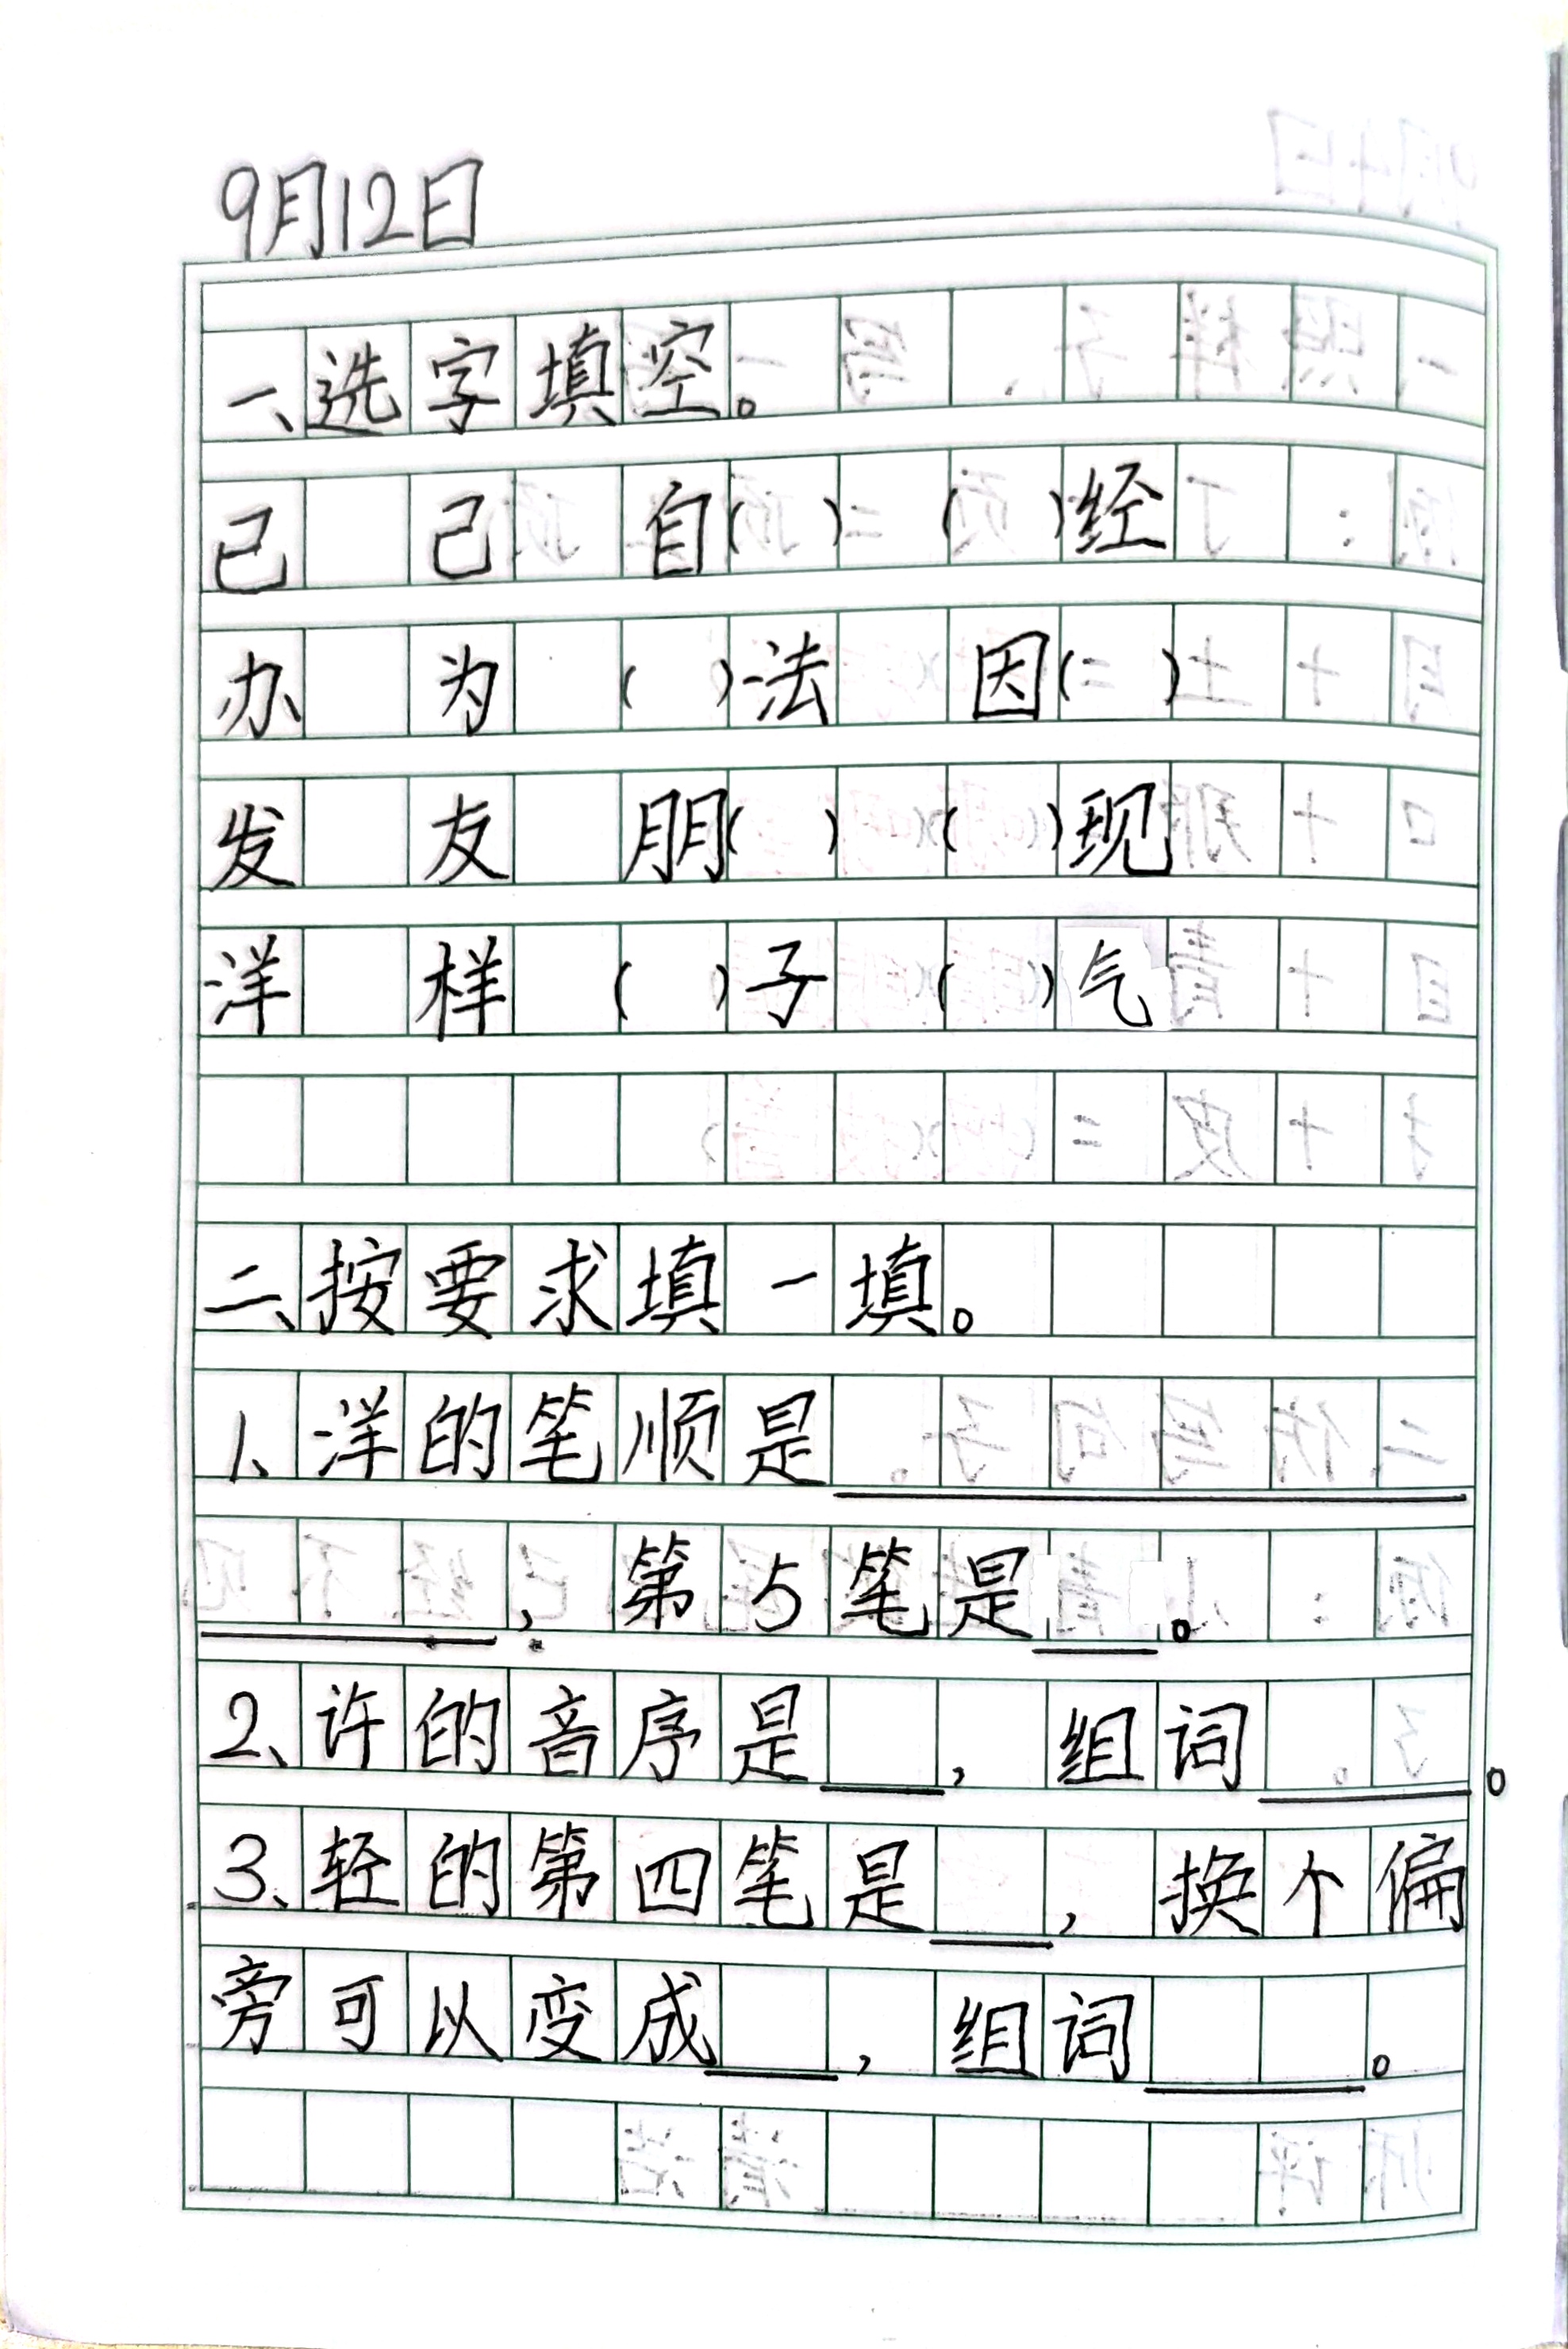 9月12日
一、选字填空。
已 己 自( ) ( )经
办 为 ( )法 因( )
发 友 朋( ) ( )现
洋 样 ( )子 ( )气
二、按要求填一填。
1、洋的笔顺是______
___，第5笔是__。
2、许的音序是__，组词____。
3、轻的第四笔是__，换个偏
旁可以变成__，组词____。